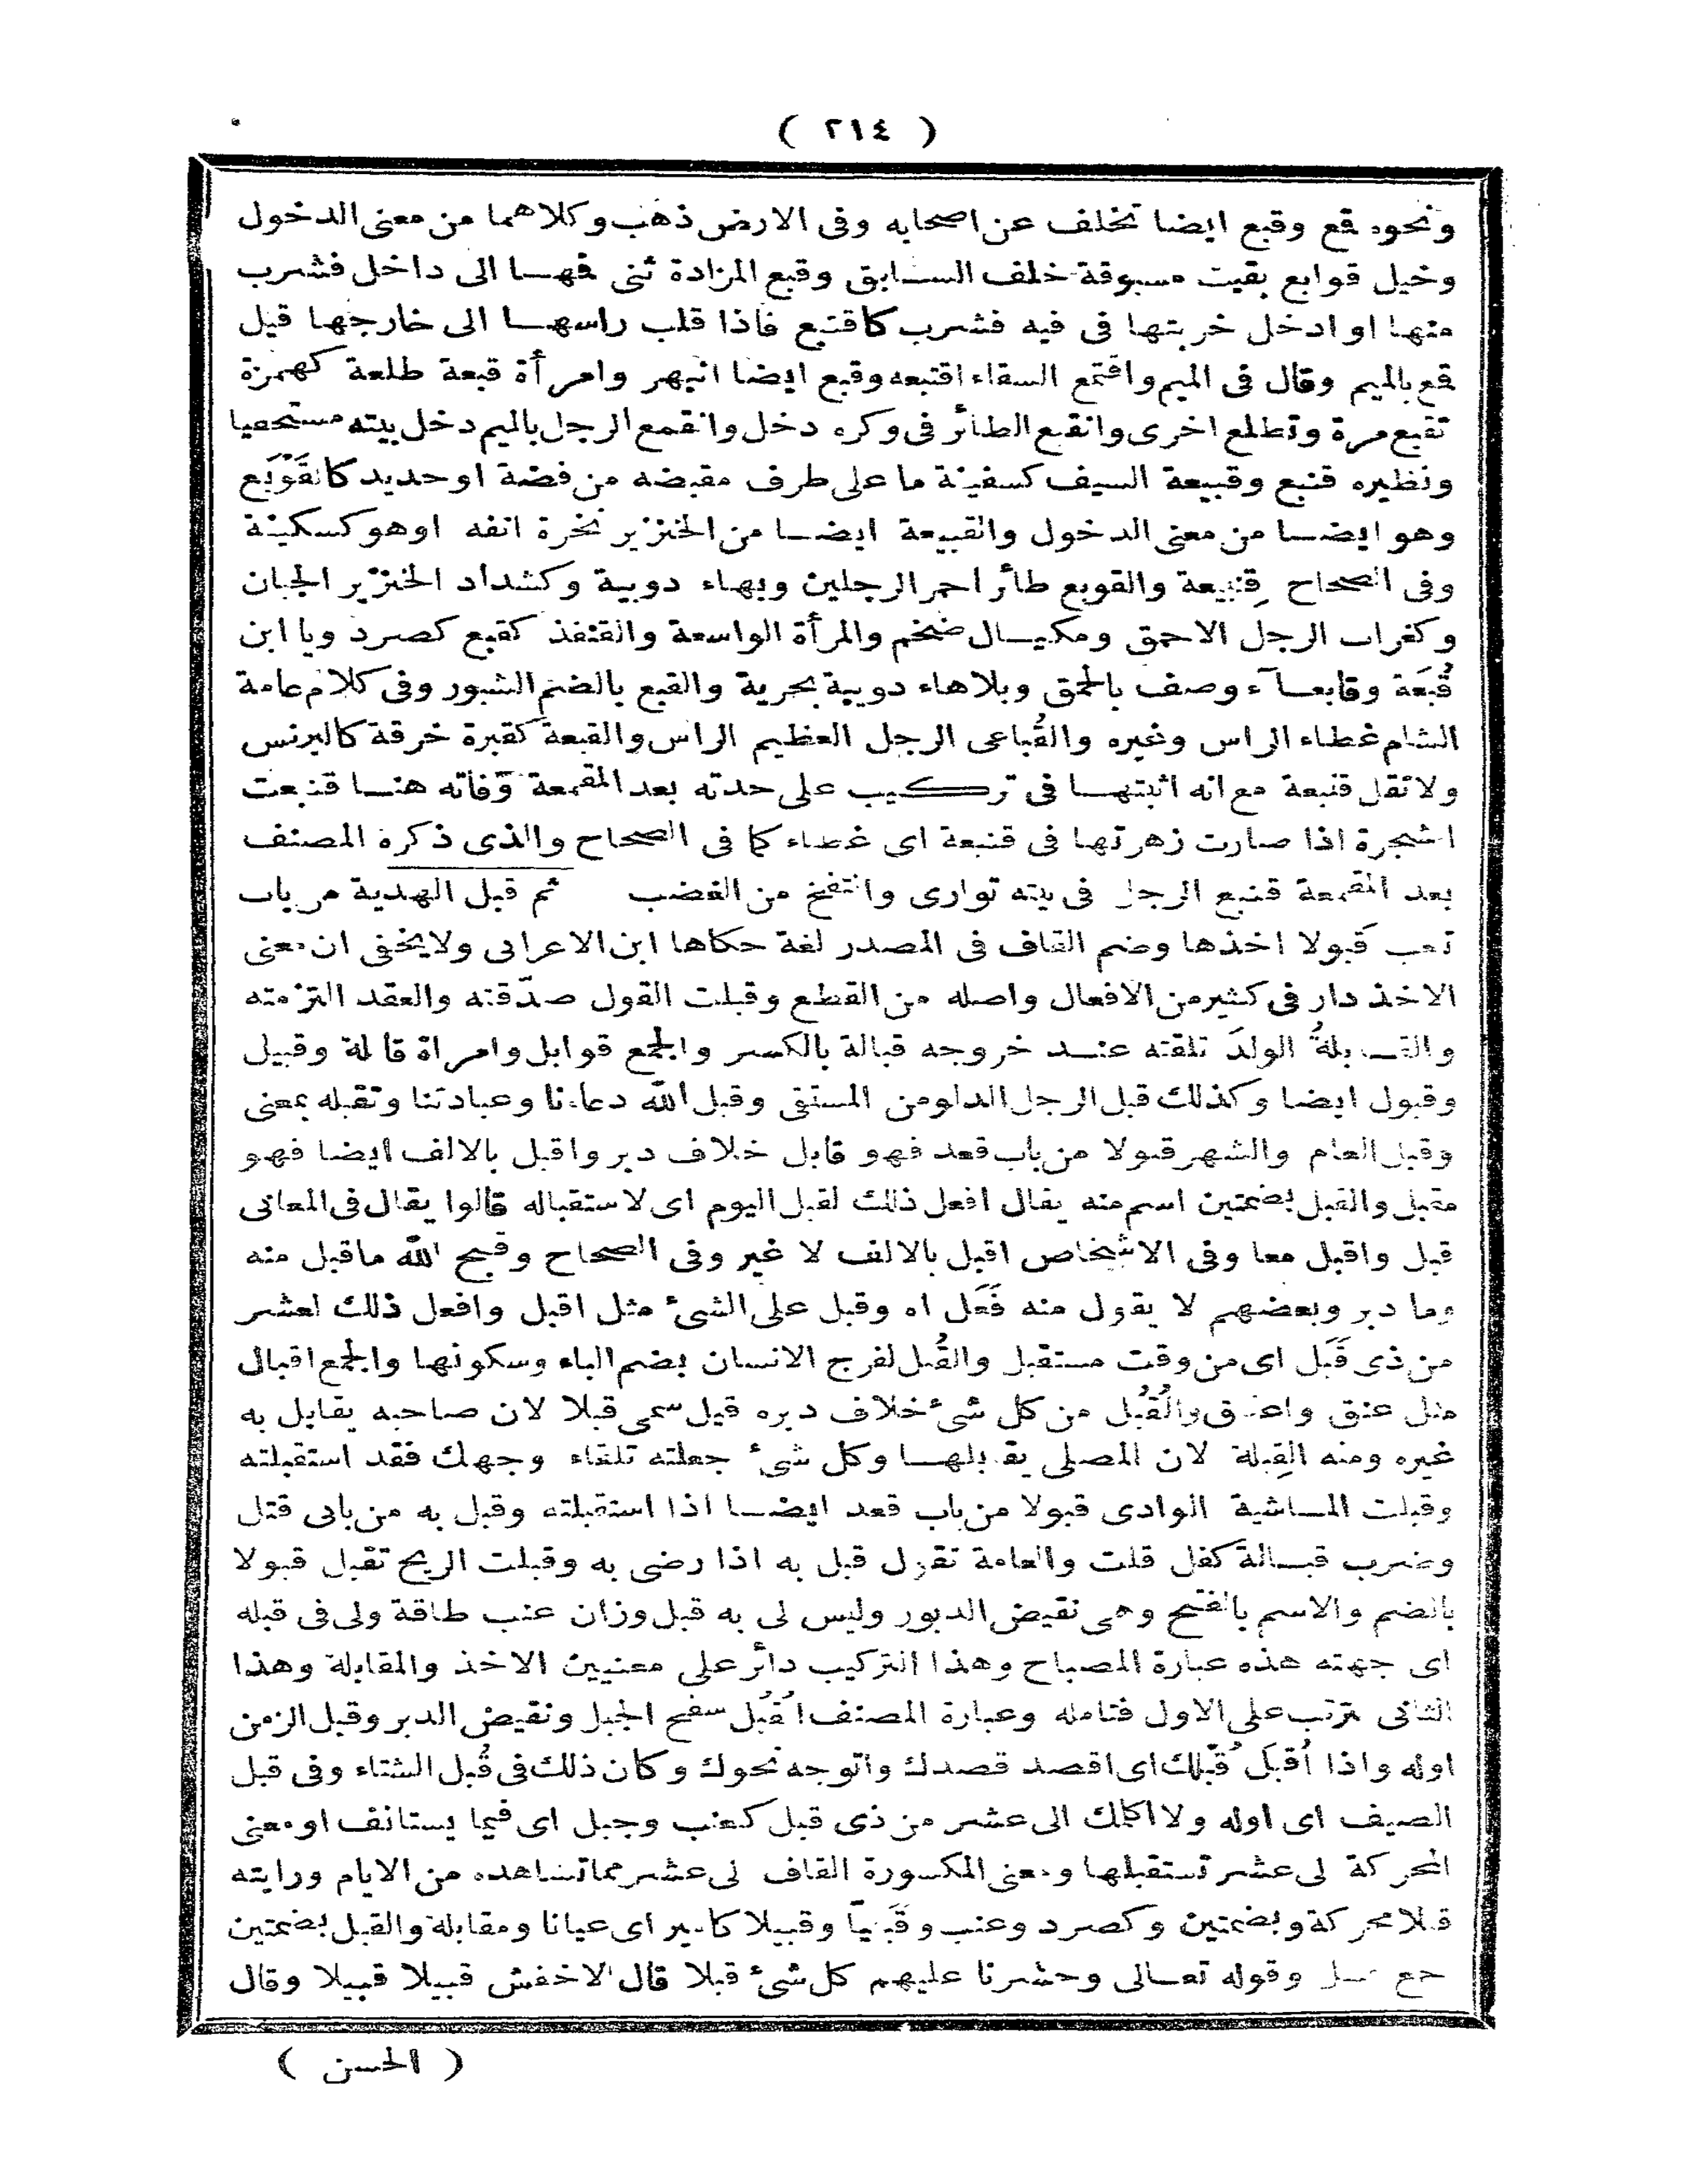 ( ٢١٤ )
ونحوه قع وقبع ايضا تخلف عن اصحابه وفى الارض ذهب وكلاهما من معنى الدخول
وخيل قوابع بقيت مسبوقة خلف السابق وقبع المزادة ثنى فهسا الى داخل فشرب
منها او ادخل خربتها فى فيه فشرب كاقتبع فاذا قلب راسها الى خارجها قيل
قع بالميم وقال فى الميم واقتمع السقاء اقتبعه وقبع ايضا انبهر وامرأة قبعة طلعة كهمزة
تقبع مرة وتطلع اخرى وانقبع الطائر فى وكره دخل وانقمع الرجل بالميم دخل بيته مستخفيا
ونظيره قنبع وقبيعة السيف كسفينة ما على طرف مقبضه من فضة او حديد كالقَوْبَع
وهو ايضا من معنى الدخول والقبيعة ايضا من الخنزير نخرة انفه او هو كسكينة
وفى الصحاح قِنبيعة والقوبع طائر احمر الرجلين وبهاء دويبة وكشداد الخنزير الجبان
وكغراب الرجل الاحمق ومكيال ضخم والمرأة الواسعة والقنفذ كقبع كصرد ويا ابن
قُبَعَة وقابعآء وصف بالحمق وبلاهاء دويبة بحرية والقبع بالضم الشبور وفى كلام عامة
الشام غطاء الراس وغيره والقُباعى الرجل العظيم الراس والقبعة كقبرة خرقة كالبرنس
ولا تقل قنبعة مع انه اثبتها فى تركيب على حدته بعد المقمعة وفاته هنا قنبعت
الشجرة اذا صارت زهرتها فى قنبعة اى غطاء كما فى الصحاح والذى ذكره المصنف
بعد المقمعة قنبع الرجل فى بيته توارى وانتفخ من الغضب ثم قبل الهدية من باب
تعب قَبولا اخذها وضم القاف فى المصدر لغة حكاها ابن الاعرابى ولا يخفى ان معنى
الاخذ دار فى كثير من الافعال واصله من القطع وقبلت القول صدّقته والعقد التزمته
والقابلةُ الولدَ تلقته عند خروجه قبالة بالكسر والجمع قوابل وامراة قابلة وقبيل
وقبول ايضا وكذلك قبل الرجل الدلو من المستقى وقبل الله دعاءنا وعبادتنا وتقبله بمعنى
وقبل العام والشهر قبولا من باب قعد فهو قابل خلاف دبر واقبل بالالف ايضا فهو
مقبل والقبل بضمتين اسم منه يقال افعل ذلك لقبل اليوم اى لاستقباله قالوا يقال فى المعانى
قبل واقبل معا وفى الاشخاص اقبل بالالف لا غير وفى الصحاح وقبح الله ما قبل منه
وما دبر وبعضهم لا يقول منه فَعَل اه وقبل على الشئ مثل اقبل وافعل ذلك لعشر
من ذى قَبَل اى من وقت مستقبل والقُبل لفرج الانسان بضم الباء وسكونها والجمع اقبال
مثل عنق واعناق والقُبُل من كل شئ خلاف دبره قيل سمى قبلا لان صاحبه يقابل به
غيره ومنه القِبلة لان المصلى يقابلها وكل شئ جعلته تلقاء وجهك فقد استقبلته
وقبلت الماشية الوادى قبولا من باب قعد ايضا اذا استقبلته وقبل به من بابى قتل
وضرب قبالة كفل قلت والعامة تقول قبل به اذا رضى به وقبلت الريح تقبل قبولا
بالضم والاسم بالفتح وهى نقيض الدبور وليس لى به قبل وزان عنب طاقة ولى فى قبله
اى جهته هذه عبارة المصباح وهذا التركيب دائر على معنيين الاخذ والمقابلة وهذا
الثانى مترتب على الاول فتامله وعبارة المصنف القُبُل سفح الجبل ونقيض الدبر وقبل الزمن
اوله واذا اُقبَل قُبلَك اى اقصد قصدك واتوجه نحوك وكان ذلك فى قُبل الشتاء وفى قبل
الصيف اى اوله ولا اكلمك الى عشر من ذى قبل كعنب وجبل اى فيما يستانف او معنى
المحركة لى عشر تستقبلها ومعنى المكسورة القاف لى عشر مما تشاهده من الايام ورايته
قبلا محركة وبضمتين وكصرد وعنب وقَبَليّا وقبيلا كامير اى عيانا ومقابلة والقبل بضمتين
جمع وقوله تعالى وحشرنا عليهم كل شئ قبلا قال الاخفش قبيلا قبيلا وقال
( الحسن )